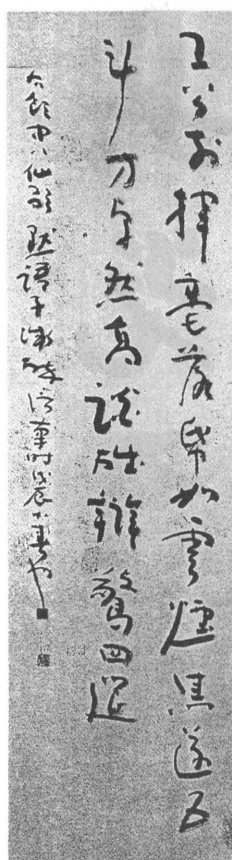 王公前揮毫落帋如雲煙焦遂五
斗方卓然高談雄辯驚四筵
飲中八仙歌 時戊辰小春也